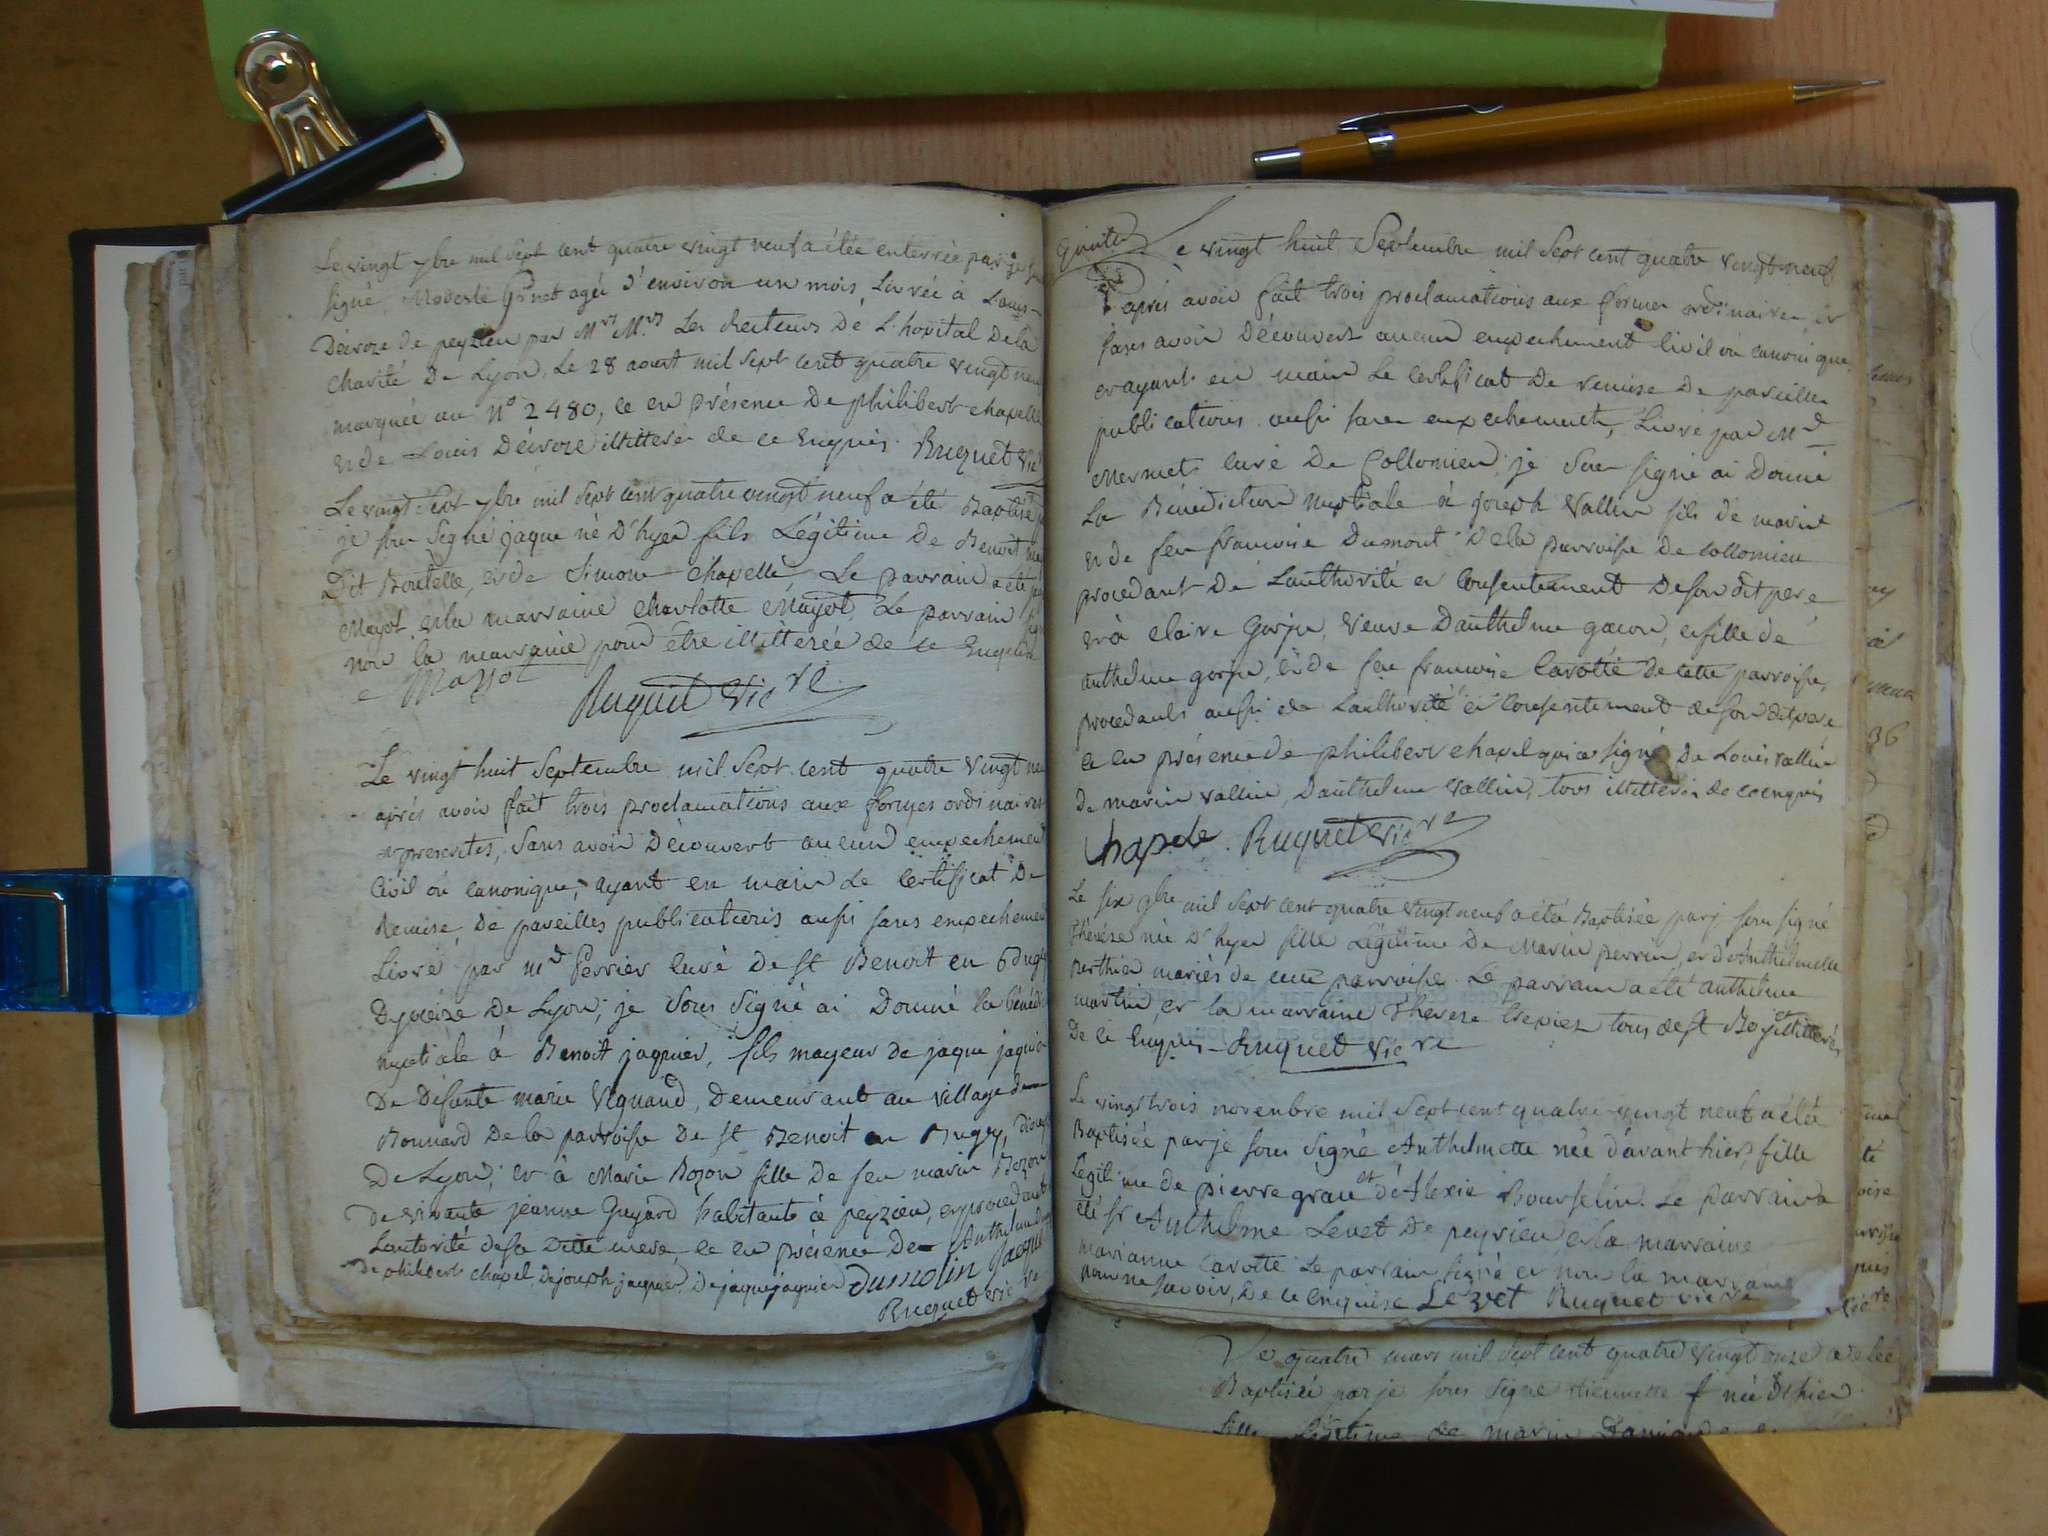 Le vingt 7bre mil sept cent quatre vingt neuf a étée enterrée par je
signé, Modeste agée d'environ un mois, Livrée à Louis
Décroze de peyzieu par Mrs Mrs Les Recteurs De L'hopital De la
charité De Lyon. Le 28 aoust mil sept cent quatre vingt neuf
marquée au N° 2480, ce en présence De philibert chapelle
et de Louis Décroze illitterés de ce Enquis. Ruquet vic
Le vingt sept 7bre mil sept cent quatre vingt neuf a été Baptisé
je sous signé jaque né D'hyer fils Légitime De Benoit
Dit Boutelle, et de Simone chapelle, Le parrain a été
Mayot et la marraine charlotte Mayot, Le parrain
non la marraine pour être illitterée de ce Enquise
Mayot
Ruquet vicre
Le vingt huit Septembre mil Sept cent quatre vingt
après avoir fait trois proclamations aux formes ordinaires
et prescrites, Sans avoir Découvert aucun empechement
Civil ou canonique, ayant en main Le certificat De
Remise De pareilles publications aussi sans empechement
Livré par Mr Perrier curé De St Benoit en
Dyocèze De Lyon; je Sous Signé ai Donné la
nuptiale à Benoit jaquier, fils mayeur de jaque
De Défunte marie Demeurant au village
Bonnard De la parroisse De St Benoit en Bugey,
De Lyon; et à Marie Bozon fille De feu marin Bozon
De vivante jeanne Guyard habitante à peyzieu, et procedant
Lautorité desa Ditte mere ce en présence De Anthelme
De philibert chapel, De joseph jaquier, De jaque jaquier Dumolin
Ruquet vicre
Le vingt huit Septembre mil Sept cent quatre vingt neuf
après avoir fait trois proclamations aux formes ordinaires, et
sans avoir Découvert aucun empechement Civil ou canonique
et ayant en main Le certificat De remise De pareilles
publications aussi sans empechement, Livré par Mr
Mermet curé De Collomieu; je Sous signé ai Donné
La Bénédiction Nuptiale à joseph Vallin fils de marin
et de feu francoise Dumont De la parroisse De Collomieu
procedant De Lauthorité et Consentement De son dit pere
et à Claire Gorju, Veuve Danthelme gacon, et fille de
anthelme gorju, et de feu francoise Carotte de cette parroisse,
procedants aussi de Lauthorité et Consentement de son dit pere
ce en présence de philibert chapel qui a signé, De Louis vallin
De marin vallin, Danthelme Vallin, tous illitterés de ce enquis
Chapele. Ruquet vicre
Le six 9bre mil Sept cent quatre vingt neuf a été Baptisée par j sous signé
thérèse née D'hyer fille Légitime De Marin perrin, et d'Anthelmette
Berthier mariés de cette parroisse. Le parrain a été anthelme
martin, et la marraine Therese tous de St et illitterés
De ce Enquis. Ruquet vicre
Le vingt trois novenbre mil Sept cent quatre vingt neuf a été
Baptisée par je sous Signé Anthelmette née d'avant hier, fille
Légitime de pierre et d'Alexie Bourselin. Le parrain a
été sr Anthelme Levet De peyrieu et la marraine
marianne Carotte Le parrain signé et non la marraine
pour ne savoir, De ce enquise Levet Ruquet vicre
Le quatre mars mil Sept cent quatre vingt onze a été
Baptisée par je sous Signé née D'hier
fille Légitime de marin